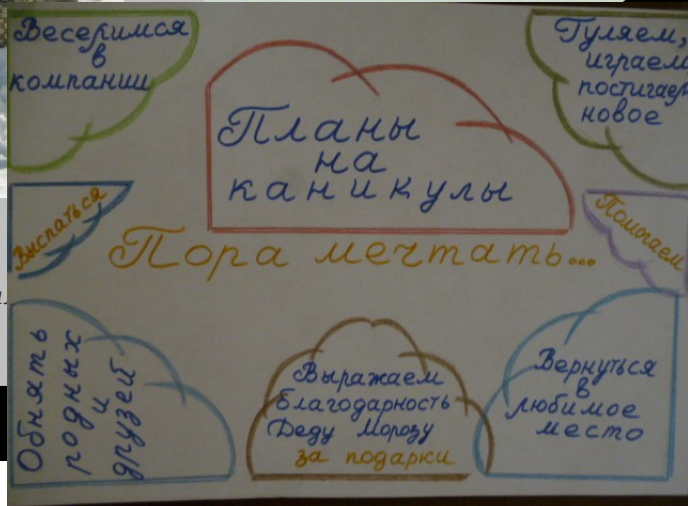 Веселимся
в
компании
Планы
на
каникулы
Гуляем,
играем
постигаем
новое
Выспаться
Помогаем
Пора мечтать...
Обнять
родных
и
друзей
Выражаем
благодарность
Деду Морозу
за подарки
Вернуться
в
любимое
место